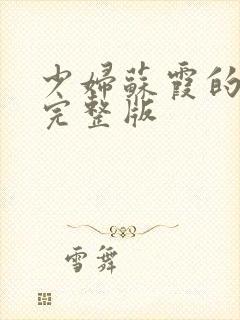 少婦蘇霞的
完整版
雪舞